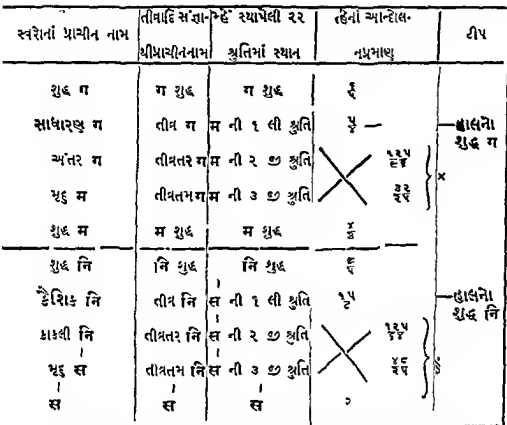 સ્વરોનાં પ્રાચીન નામ તીવ્રાદિ સંજ્ઞા-થીપ્રાચીનનામ મ્હેં સ્થાપેલી ૨૨ શ્રુતિમાં સ્થાન ત્હેનાં આન્દોલ-નપ્રમાણ ટીપ
શુદ્ધ ग ग શુદ્ધ ग શુદ્ધ
સાધારણ ग તીવ્ર ग म ની ૧ લી શ્રુતિ ૫/૪ — —હાલનો શુદ્ધ ग
અંતર ग તીવ્રતર ग म ની ૨ જી શ્રુતિ
મૃદુ म તીવ્રતમ ग म ની ૩ જી શ્રુતિ ×
શુદ્ધ म म શુદ્ધ म શુદ્ધ ૪/૩
શુદ્ધ નિ નિ શુદ્ધ નિ શુદ્ધ
કૈશિક નિ તીવ્ર નિ स ની ૧ લી શ્રુતિ ૧૫/૮ —હાલનો શુદ્ધ નિ
કાકલી નિ તીવ્રતર નિ स ની ૨ જી શ્રુતિ ૧૨૫/૬૪
મૃદુ स તીવ્રતમ નિ स ની ૩ જી શ્રુતિ
स स स ૨